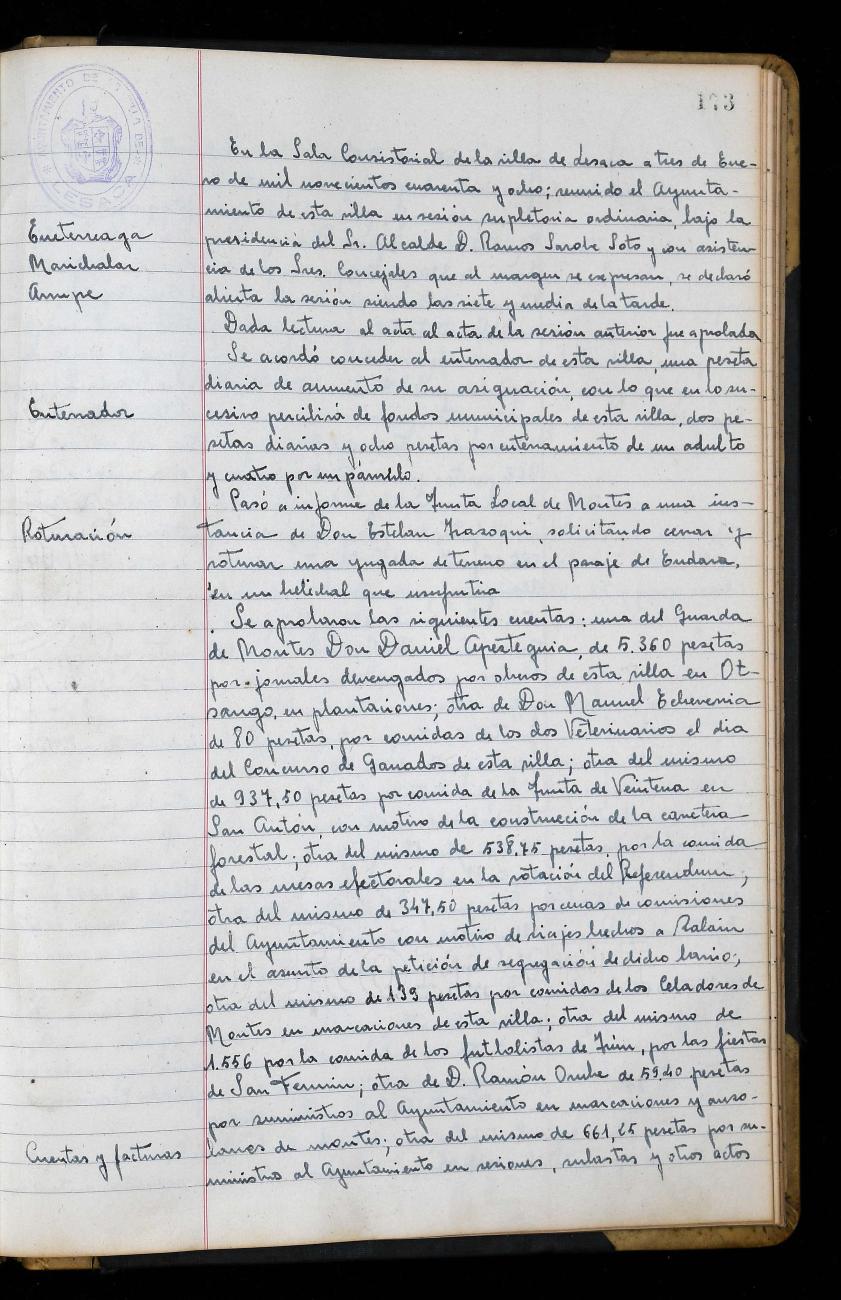 173
AYUNTAMIENTO DE LA VILLA DE LESACA
En la Sala Consistorial de la villa de Lesaca a tres de Ene-
ro de mil novecientos cuarenta y ocho; reunido el Ayunta-
miento de esta villa en sesión supletoria ordinaria, bajo la
presidencia del Sr. Alcalde D. Ramos Sarobe Soto y con asisten-
cia de los Sres. Concejales que al margen se expresan, se declaró
abierta la sesión siendo las siete y media de la tarde.
Eneterreaga
Marichalar
Arrupe
Dada lectura al acta al acta de la sesión anterior fue aprobada
Se acordó conceder al enterrador de esta villa, una peseta
diaria de aumento de su asignación, con lo que en lo su-
Enterrador
cesivo percibirá de fondos municipales de esta villa, dos pe-
setas diarias y ocho pesetas por enterramiento de un adulto
y cuatro por un párvulo.
Pasó a informe de la Junta Local de Montes a una ins-
Roturación
tancia de Don Esteban Irazoqui, solicitando cerrar y
roturar una yugada de terreno en el paraje de Endara,
en un helechal que usufrutua
Se aprobaron las siguientes cuentas: una del Guarda
de Montes Don Daniel Apesteguia, de 5.360 pesetas
por jornales devengados por obreros de esta villa en Ot-
sango, en plantaciones; otra de Don Manuel Echeverria
de 80 pesetas, por comidas de los dos Veterinarios el dia
del Concurso de Ganados de esta villa; otra del mismo
de 937,50 pesetas por comida de la Junta de Veintena en
San Antón, con motivo de la construcción de la carretera
forestal; otra del mismo de 538,75 pesetas, por la comida
de las mesas electorales en la votación del Referendum;
otra del mismo de 347,50 pesetas por cenas de comisiones
del Ayuntamiento con motivo de viajes hechos a Zalain
en el asunto de la petición de segregación de dicho barrio;
otra del mismo de 139 pesetas por comidas de los Celadores de
Montes en marcaciones de esta villa; otra del mismo de
1.556 por la comida de los futbolistas de Irún, por las fiestas
de San Fermin; otra de D. Ramón Orube de 59,40 pesetas
por suministros al Ayuntamiento en marcaciones y
lanes de montes; otra del mismo de 661,25 pesetas por su-
Cuentas y facturas
ministro al Ayuntamiento en sesiones, subastas y otros actos